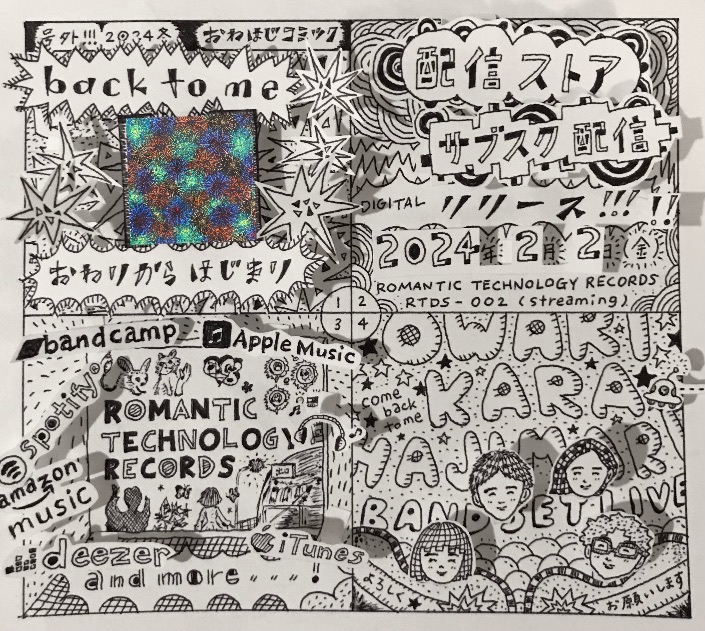 号外!!! 2024冬
おわはじコミック
back to me
おわりからはじまり
1
配信ストア
サブスク配信
DIGITAL リリース!!! !!
2024年2月2日(金)
ROMANTIC TECHNOLOGY RECORDS
RTDS-002 (streaming)
2
3
bandcamp
Apple Music
Spotify
amazon
music
ROMANTIC
TECHNOLOGY
RECORDS
deezer
iTunes
and more...!
4
OWARI
KARA
HAJIMARI
come
back
to me
BAND SET LIVE
よろしく
お願いします